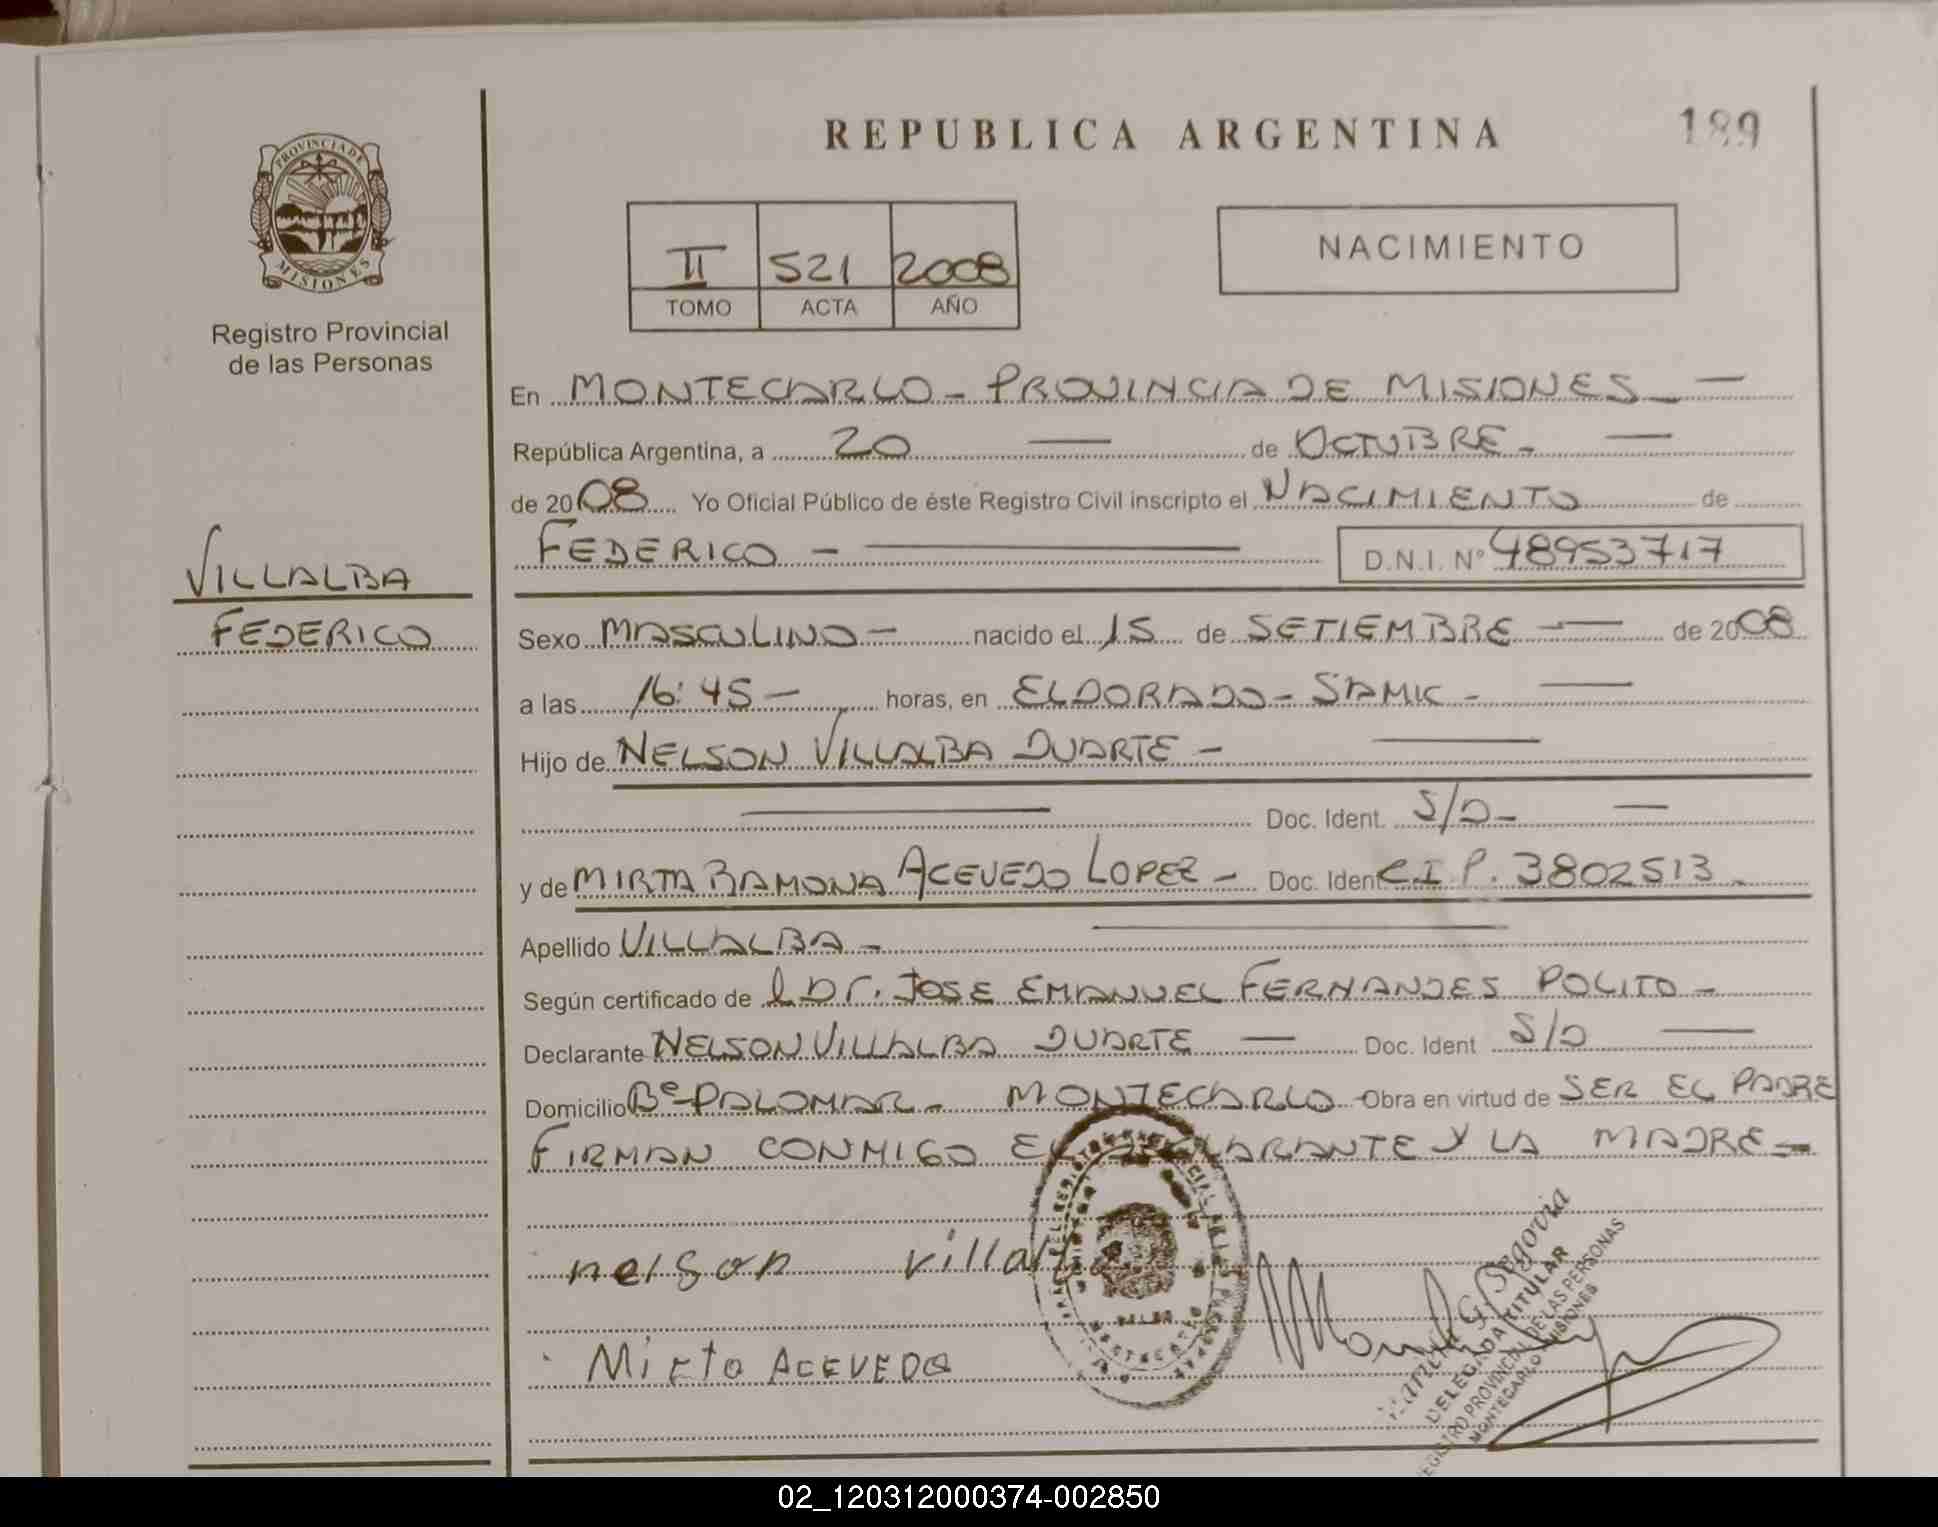 REPUBLICA ARGENTINA
189
PROVINCIA DE
MISIONES
Registro Provincial
de las Personas
II 521 2008
TOMO ACTA AÑO
NACIMIENTO
En MONTECARLO - PROVINCIA DE MISIONES -
República Argentina, a 20 de OCTUBRE -
de 2008 Yo Oficial Público de éste Registro Civil inscripto el NACIMIENTO de
FEDERICO - D.N.I. Nº 48953717
VILLALBA
FEDERICO
Sexo MASCULINO - nacido el 15 de SETIEMBRE - de 2008
a las 16:45 - horas, en ELDORADO - SAMIC -
Hijo de NELSON VILLALBA DUARTE -
Doc. Ident. S/D -
y de MIRTA RAMONA ACEVEDO LOPEZ - Doc. Ident C.I P. 3802513 -
Apellido VILLALBA -
Según certificado de l Dr. JOSE EMANUEL FERNANDES POLITO -
Declarante NELSON VILLALBA DUARTE - Doc. Ident S/D
Domicilio Bº PALOMAR - MONTECARLO - Obra en virtud de SER EL PADRE
FIRMAN CONMIGO EL DECLARANTE Y LA MADRE -
nelson villal
Mirta ACEVEDO
G. Segovia
DELEGADA TITULAR
REGISTRO PROVINCIAL DE LAS PERSONAS
MONTECARLO MISIONES
02_120312000374-002850